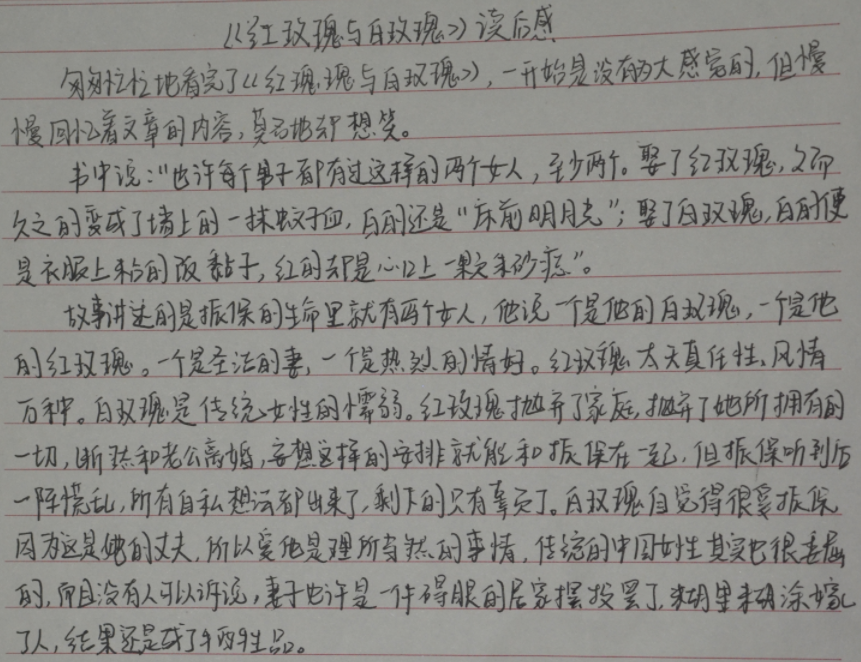 《红玫瑰与白玫瑰》读后感
匆匆忙忙地看完了《红瑰瑰与白玫瑰》,一开始是没有多大感觉的,但慢
慢回忆着文章的内容,莫名地却想笑。
书中说:“也许每个男子都有过这样的两个女人,至少两个。娶了红玫瑰,久而
久之的变成了墙上的一抹蚊子血,白的还是“床前明月光”;娶了白玫瑰,白的便
是衣服上粘的饭黏子,红的却是心口上一颗朱砂痣”。
故事讲述的是振保的生命里就有两个女人,他说一个是他的白玫瑰,一个是他
的红玫瑰。一个是圣洁的妻,一个是热烈的情妇。红玫瑰太天真任性、风情
万种。白玫瑰是传统女性的懦弱。红玫瑰抛弃了家庭,抛弃了她所拥有的
一切,断然和老公离婚,妄想这样的安排就能和振保在一起,但振保听到后
一阵慌乱,所有自私想法都出来了,剩下的只有辜负了。白玫瑰自觉得很爱振保
因为这是她的丈夫,所以爱他是理所当然的事情,传统的中国女性其实也很委屈
的,而且没有人可以诉说,妻子也许是一件碍眼的居家摆设罢了,糊里糊涂嫁
了人,结果还是成了牺牲品。